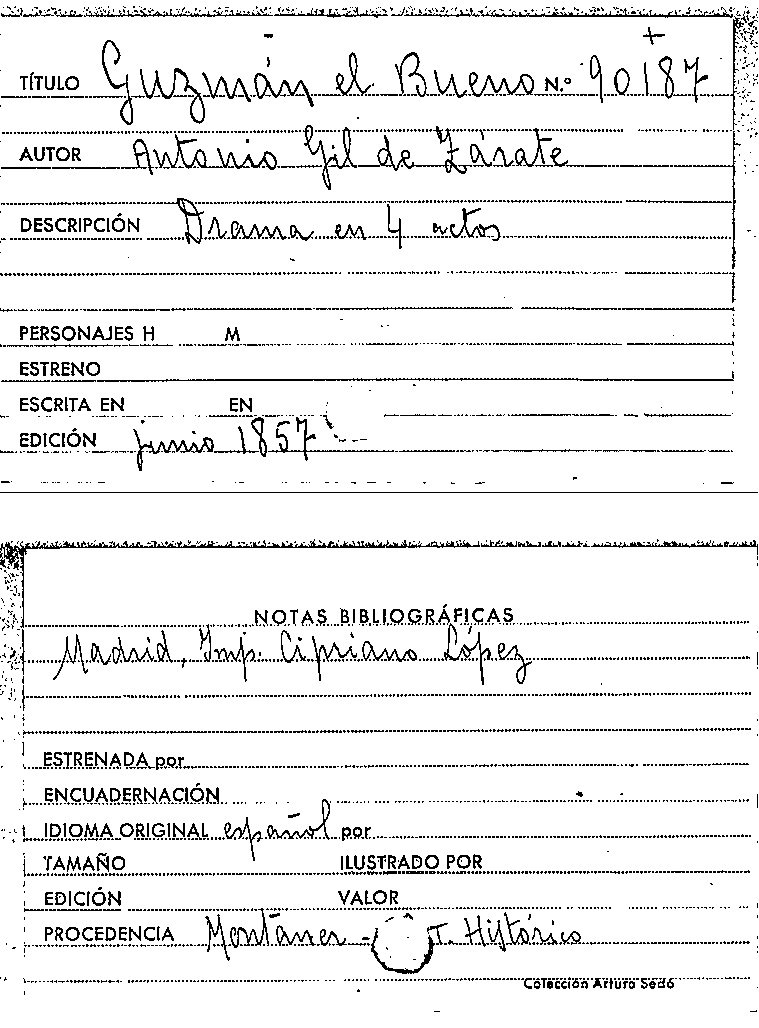 +
TÍTULO Guzmán el Bueno N.º 90187
AUTOR Antonio Gil de Zárate
DESCRIPCIÓN Drama en 4 actos
PERSONAJES H M
ESTRENO
ESCRITA EN EN
EDICIÓN junio 1857
NOTAS BIBLIOGRÁFICAS
Madrid, Imp. Cipriano López
ESTRENADA por
ENCUADERNACIÓN
IDIOMA ORIGINAL español por
TAMAÑO ILUSTRADO POR
EDICIÓN VALOR
PROCEDENCIA Montaner - T. Histórico
Colección Arturo Sedó